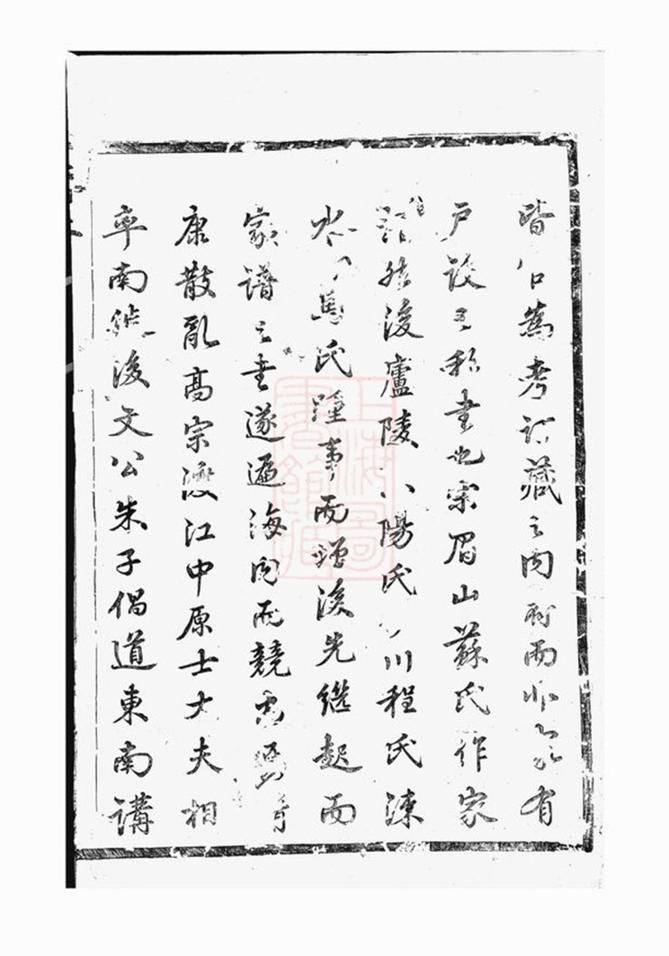 皆 為考訂藏之內府而非 有
户設之私書也宋眉山蘇氏作家
譜然後廬陵 陽氏 川程氏涑
水 馬氏踵事而增後先繼起而
家譜之書遂遍海內而競
康散亂高宗渡江中原士大夫相
率南 後文公朱子倡道東南講
上海圖書館藏